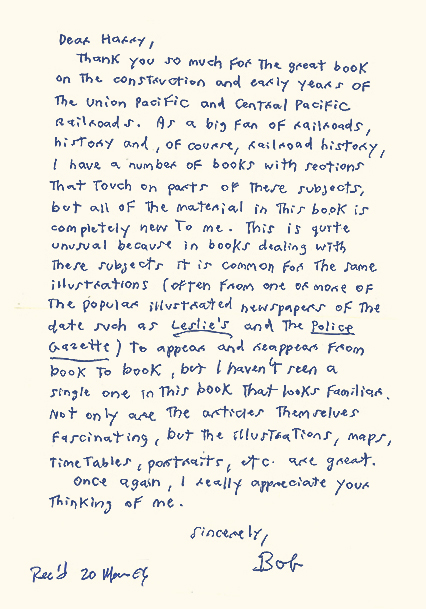 Dear Harry,
Thank you so much for the great book
on the construction and early years of
the Union Pacific and Central Pacific
Railroads. As a big fan of railroads,
history and, of course, railroad history,
I have a number of books with sections
that touch on parts of these subjects,
but all of the material in this book is
completely new to me. This is quite
unusual because in books dealing with
these subjects it is common for the same
illustrations (often from one or more of
the popular illustrated newspapers of the
date such as Leslie's and the Police
Gazette) to appear and reappear from
book to book, but I haven't seen a
single one in this book that looks familiar.
Not only are the articles themselves
fascinating, but the illustrations, maps,
timetables, portraits, etc. are great.
Once again, I really appreciate your
thinking of me.
Sincerely,
Bob
Rec'd 20 Mar